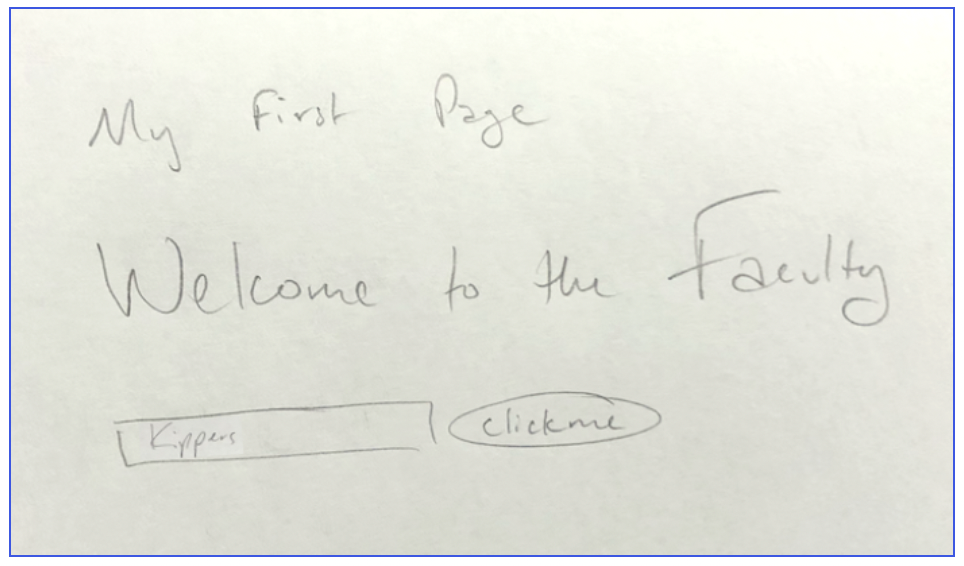 My First Page
Welcome to the Faculty
Kippers clickme